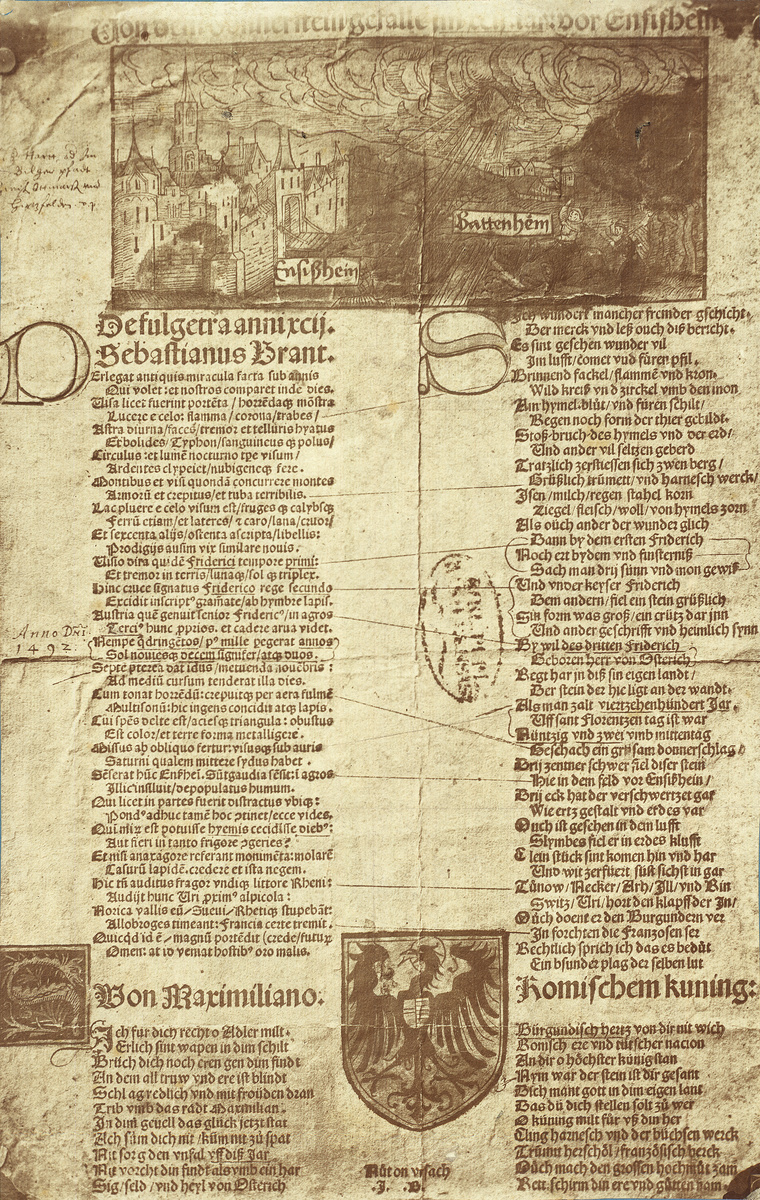 Von dem donnerstein gefallē im xcij. iar: vor Ensißhein
Ensißhein
Battenhēm
De fulgetra anni xcij.
Sebastianus Brant.
Perlegat antiquis miracula facta sub annis
Qui volet: et nostros comparet inde dies.
Visa licet fuerint portēta / horrēdaqꝫ mōstra
Lucere e celo: flamma / corona / trabes /
Astra diurna / faces / tremor et telluris hyatus
Et bolides / Typhon / sanguineus qꝫ polus /
Circulus: et lumē nocturno tpe visum /
Ardentes clypei et / nubigeneqꝫ fere.
Montibus et visi quondā concurrere montes
Armorū et crepitus / et tuba terribilis.
Lac pluere e celo visum est / fruges qꝫ calybsqꝫ
Ferrū etiam / et lateres / ⁊ caro / lana / cruor /
Et sexcenta alijs / ostenta ascripta / libellis:
Prodigijs ausim vix similare nouis.
Visio dira quidē Friderici tempore primi:
Et tremor in terris / lunaqꝫ / sol qꝫ triplex.
Hinc cruce signatus Friderico rege secundo
Excidit inscriptꝰ gramate / ab hymbre lapis.
Austria quē genuit senior Fridericꝰ / in agros
Tercijꝰ hunc ꝓprios. et cadere arua videt.
Nempe q̄dringētos / pꝰ mille pegerat annos
Sol nouiesqꝫ decem signifer / atqꝫ duos.
Septē pterea dat idus / metuenda nouēbris:
Ad mediū cursum tenderat illa dies.
Cum tonat horrēdū: crepuitqꝫ per aera fulmē
Multisonū: hic ingens concidit atqꝫ lapis.
Cui spēs delte est / aciesqꝫ triangula: obustus
Est color / et terre forma metalligere.
Missus ab obliquo fertur: visusqꝫ sub auris
Saturni qualem mittere sydus habet.
Senserat hūc Ensheī. Sūtgaudia sēsit: i agros
Illic insiluit / depopulatus humum.
Qui licet in partes fuerit distractus vbiqꝫ:
Pondꝰ adhuc tamē hoc ꝯtinet / ecce vides.
Qui mirū est potuisse hyemis cecidisse diebꝰ:
Aut fieri in tanto frigore ꝯgeries?
Et nisi anaxagore referant monimēta: molarē
Casurū lapidē. credere et ista negem.
Hic tñ auditus fragor vndiqꝫ littore Rheni:
Audijt hunc Uri ꝓximꝰ alpicola:
Norica vallis eū / Suevi / Rhetiqꝫ stupebāt:
Allobroges timeant: Francia certe tremit.
Quicqd id ē / magnū portēdit (crede / futurꝫ
Omen: at id veniat hostibꝰ oro malis.
Sich wundert mancher fremder gschicht.
Der merck vnd leß ouch diß bericht.
Es sint gesehen wunder vil
Im lufft / comet vnd füren pfil.
Brinnend fackel / flammē vnd kron.
Wild kreiß vnd zirckel vmb den mon
Am hymel. blüt / vnd füren schilt /
Regen noch form der thier gebildt.
Stoß. bruch. des hymels vnd der erd /
Und ander vil seltzen geberd
Tratzlich zerstiessen sich zwen berg /
Grüßlich trümett / vnd harnesch werck /
Isen / milch / regen stahel korn
Ziegel / fleisch / woll / von hymels zorn
Als ouch ander der wunder glich
Dann by dem ersten Friderich
Noch ert bydem vnd finsterniß
Sach man drij sunn vnd mon gewiß
Und vnder keyser Friderich
Dem andern / fiel ein stein grüßlich
Sin form was groß / ein crütz dar inn
Und ander geschrifft vnd heimlich synn
By wil des dritten Friderich
Geboren herr von Osterich
Regt har jn diß sin eigen landt /
Der stein der hie ligt an der wandt.
Als man zalt viertzehenhundert Jar.
Uff sant Florentzen tag ist war
Nüntzig vnd zwei vmb mittentag
Geschach ein grusam donnerschlag /
Drij zentner schwer fiel diser stein
Hie in dem feld vor Ensißhein /
Drij eck hat der verschwertzet gar
Wie ertz gestalt vnd erdes var
Ouch ist gesehen in dem lufft
Slymbes fiel er in erdes klufft
Clein stück sint komen hin vnd har
Und wit zerfüert süst sichst in gar
Tünow / Necker / Arh / Jll / vnd Rin
Switz / Uri / hort den klapff der In /
Ouch doent er den Burgundern ver
In forchten die Franzosen ser
Rechtlich sprich ich das es bedüt
Ein bsunder plag der selben lüt
Von Maximiliano:
Romischem kuning:
Ich für dich recht o Adler milt.
Erlich sint wapen in dim schilt
Brüch dich noch eren gen dim findt
An dem all truw vnd ere ist blindt
Schlag redlich vnd mit fröuden dran
Trib vmb das radt Maximilian.
In dim geuell das glück jetzt stat
Ach süm dich nit / küm nit zü spat
Nit sorg den vnfal vff diß Jar
Nit vorcht din findt als vmb ein har
Sig / seld / vnd heyl von Osterich
Burgundisch hertz von dir nit wich
Romisch ere vnd tütscher nacion
An dir o höchster künig stan
Nym war der stein ist dir gesant
Dich mant gott in dim eigen lant
Das dü dich stellen solt zü wer
O küning milt für vß din her
Cling harnesch vnd der büchsen werck
Trümt herschöl / französisch berck
Ouch mach den grossen hochmüt zam
Rett schirm din ere vnd gütten nam.
Nüt on vrsach
.J. B.
Anno Dñi
1492.